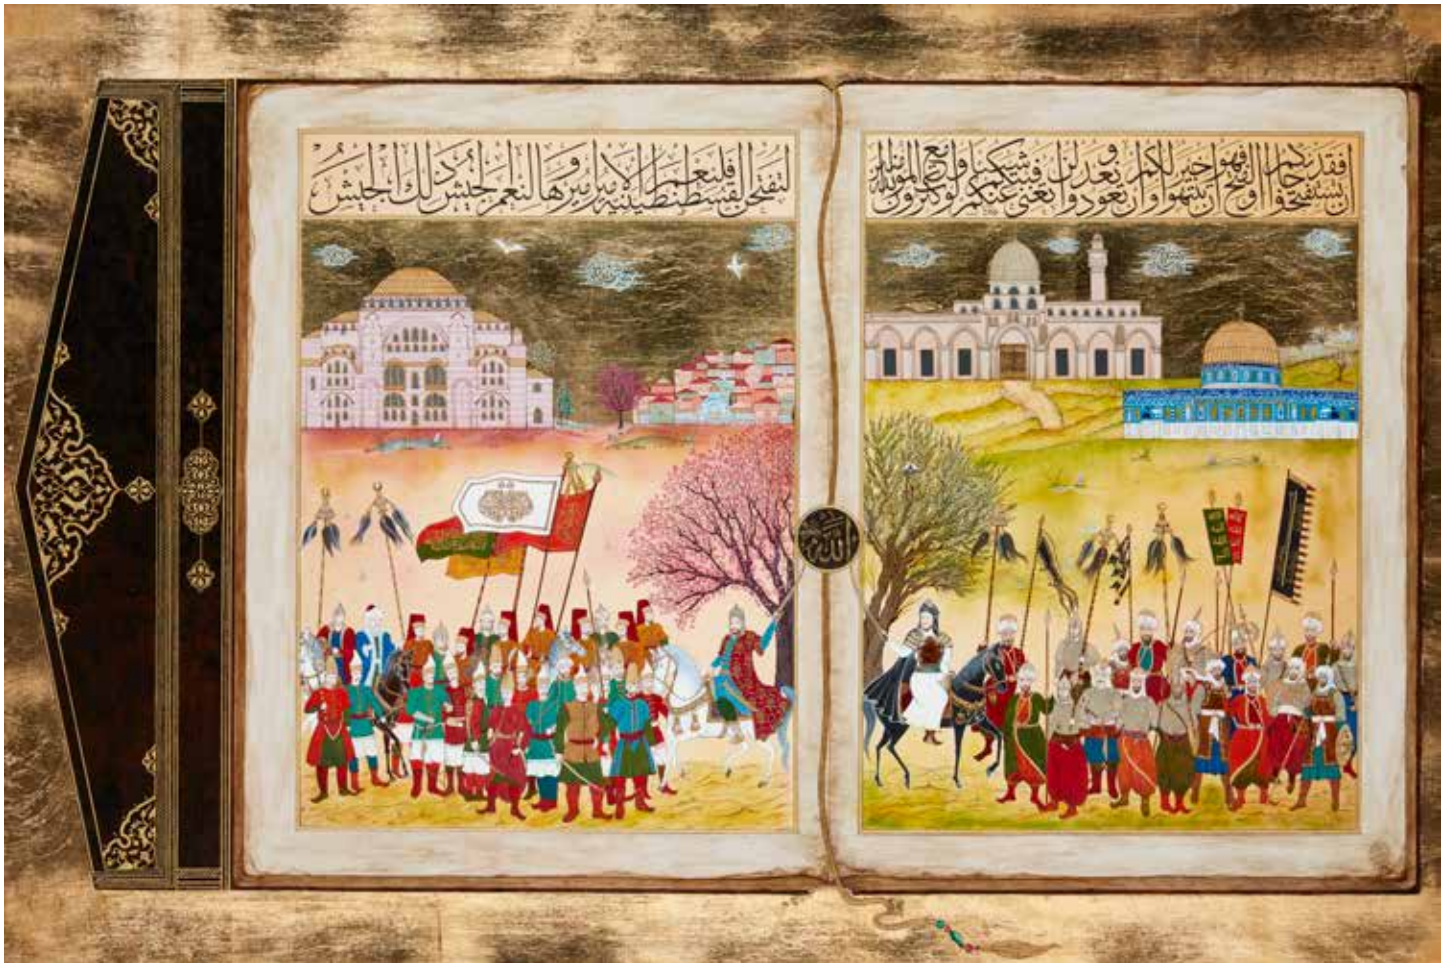 ان تستفتحوا فقد جاءكم الفتح وان تنتهوا فهو خير لكم وان تعودوا نعد ولن تغنى عنكم فئتكم شيئا ولو كثرت وان الله مع المؤمنين
لتفتحن القسطنطينية فلنعم الامير اميرها ولنعم الجيش ذلك الجيش
الله